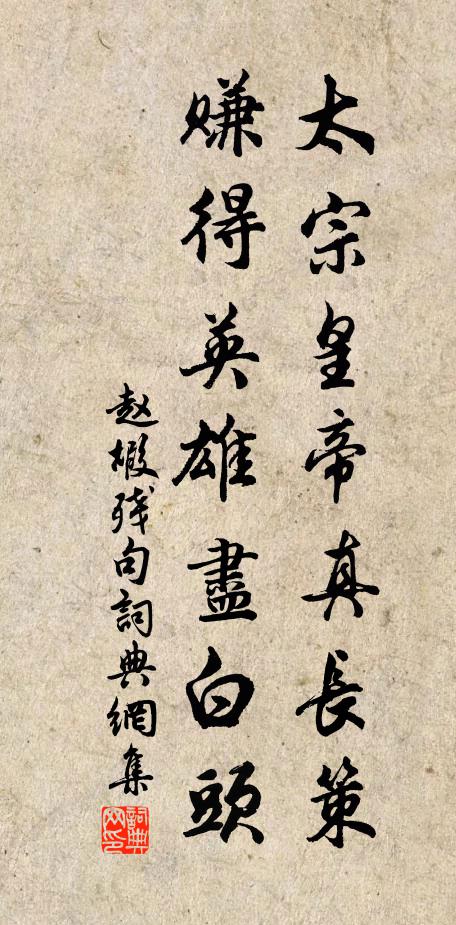 太宗皇帝真長策
賺得英雄盡白頭
赵嘏残句詞典網集
詞典网印